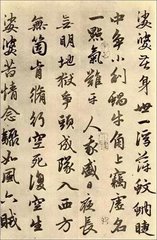 娑婆苦身世一浮萍蚊蚋睫
中争小利蝸牛角上竊虛名
一點氣難平 人我盛日夜長
無明地獄争頭成隊入西方
無箇肯脩行空死復空生
娑婆苦情念驟如風六賊